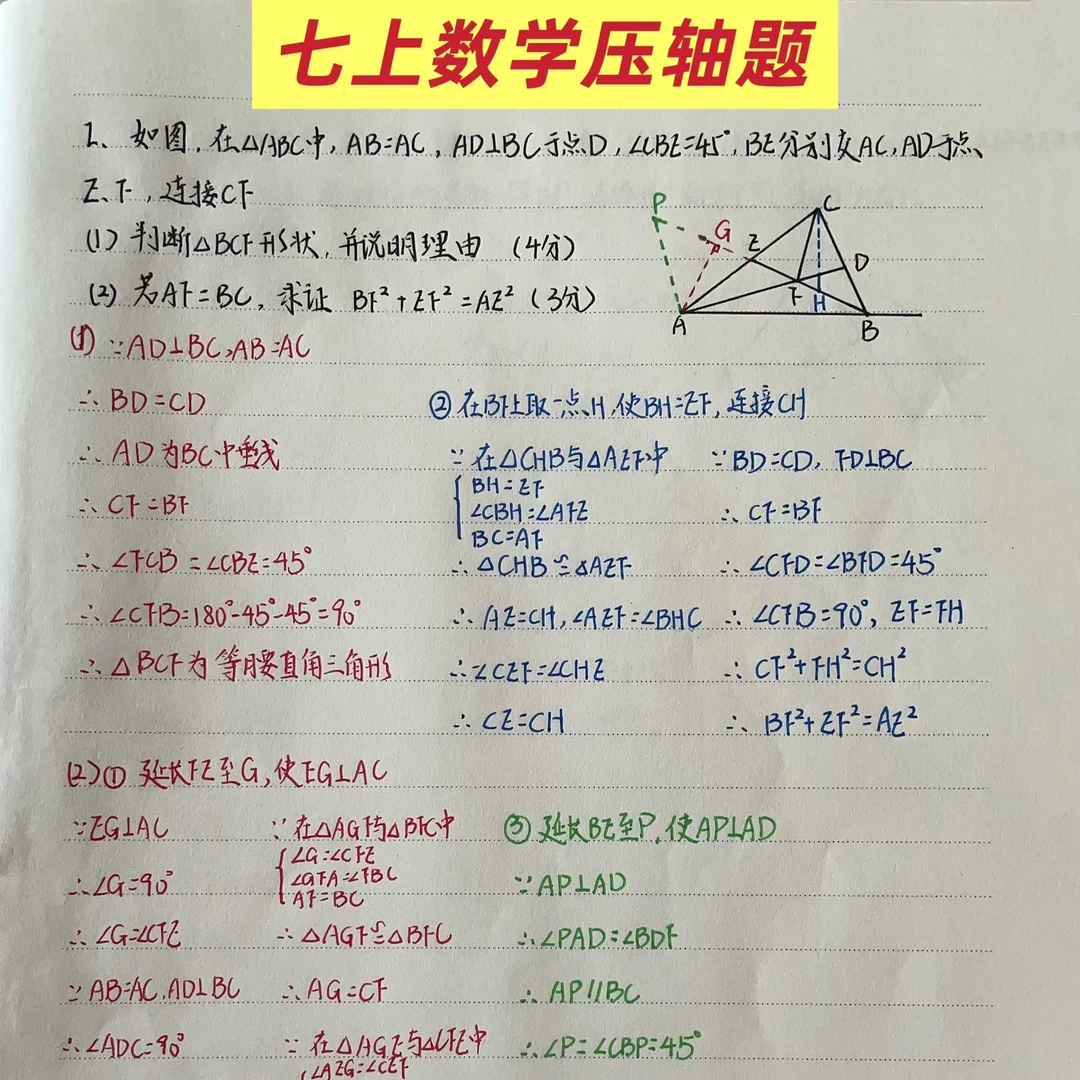 七上数学压轴题
1、如图,在△ABC中,AB=AC,AD⊥BC于点D,∠CBE=45°,BE分别交AC,AD于点、
E、F,连接CF
(1) 判断△BCF形状,并说明理由 (4分)
(2) 若AF=BC,求证 BF²+EF²=AE² (3分)
P
G
E
C
D
F
H
A
B
(1) ∵AD⊥BC,AB=AC
∴ BD=CD
∴ AD为BC中垂线
∴ CF=BF
∴ ∠FCB=∠CBE=45°
∴ ∠CFB=180°-45°-45°=90°
∴ △BCF为等腰直角三角形
② 在BF上取一点H,使BH=EF,连接CH
∵ 在△CHB与△AEF中
BH=EF
∠CBH=∠AFE
BC=AF
∴ △CHB≌△AEF
∴ AE=CH,∠AEF=∠BHC
∴ ∠CEF=∠CHE
∴ CE=CH
∵BD=CD,FD⊥BC
∴ CF=BF
∴ ∠CFD=∠BFD=45°
∴ ∠CFB=90°,EF=FH
∴ CF²+FH²=CH²
∴ BF²+EF²=AE²
(2)① 延长FE至G,使EG⊥AC
∵EG⊥AC
∴∠G=90°
∴ ∠G=∠CFE
∵ AB=AC,AD⊥BC
∴∠ADC=90°
∵ 在△AGF与△BFC中
∠G=∠CFE
∠GFA=∠FBC
AF=BC
∴ △AGF≌△BFC
∴ AG=CF
∵ 在△AGE与△CFE中
∠AEG=∠CEF
③ 延长BE至P,使AP⊥AD
∵AP⊥AD
∴∠PAD=∠BDF
∴ AP//BC
∴∠P=∠CBP=45°